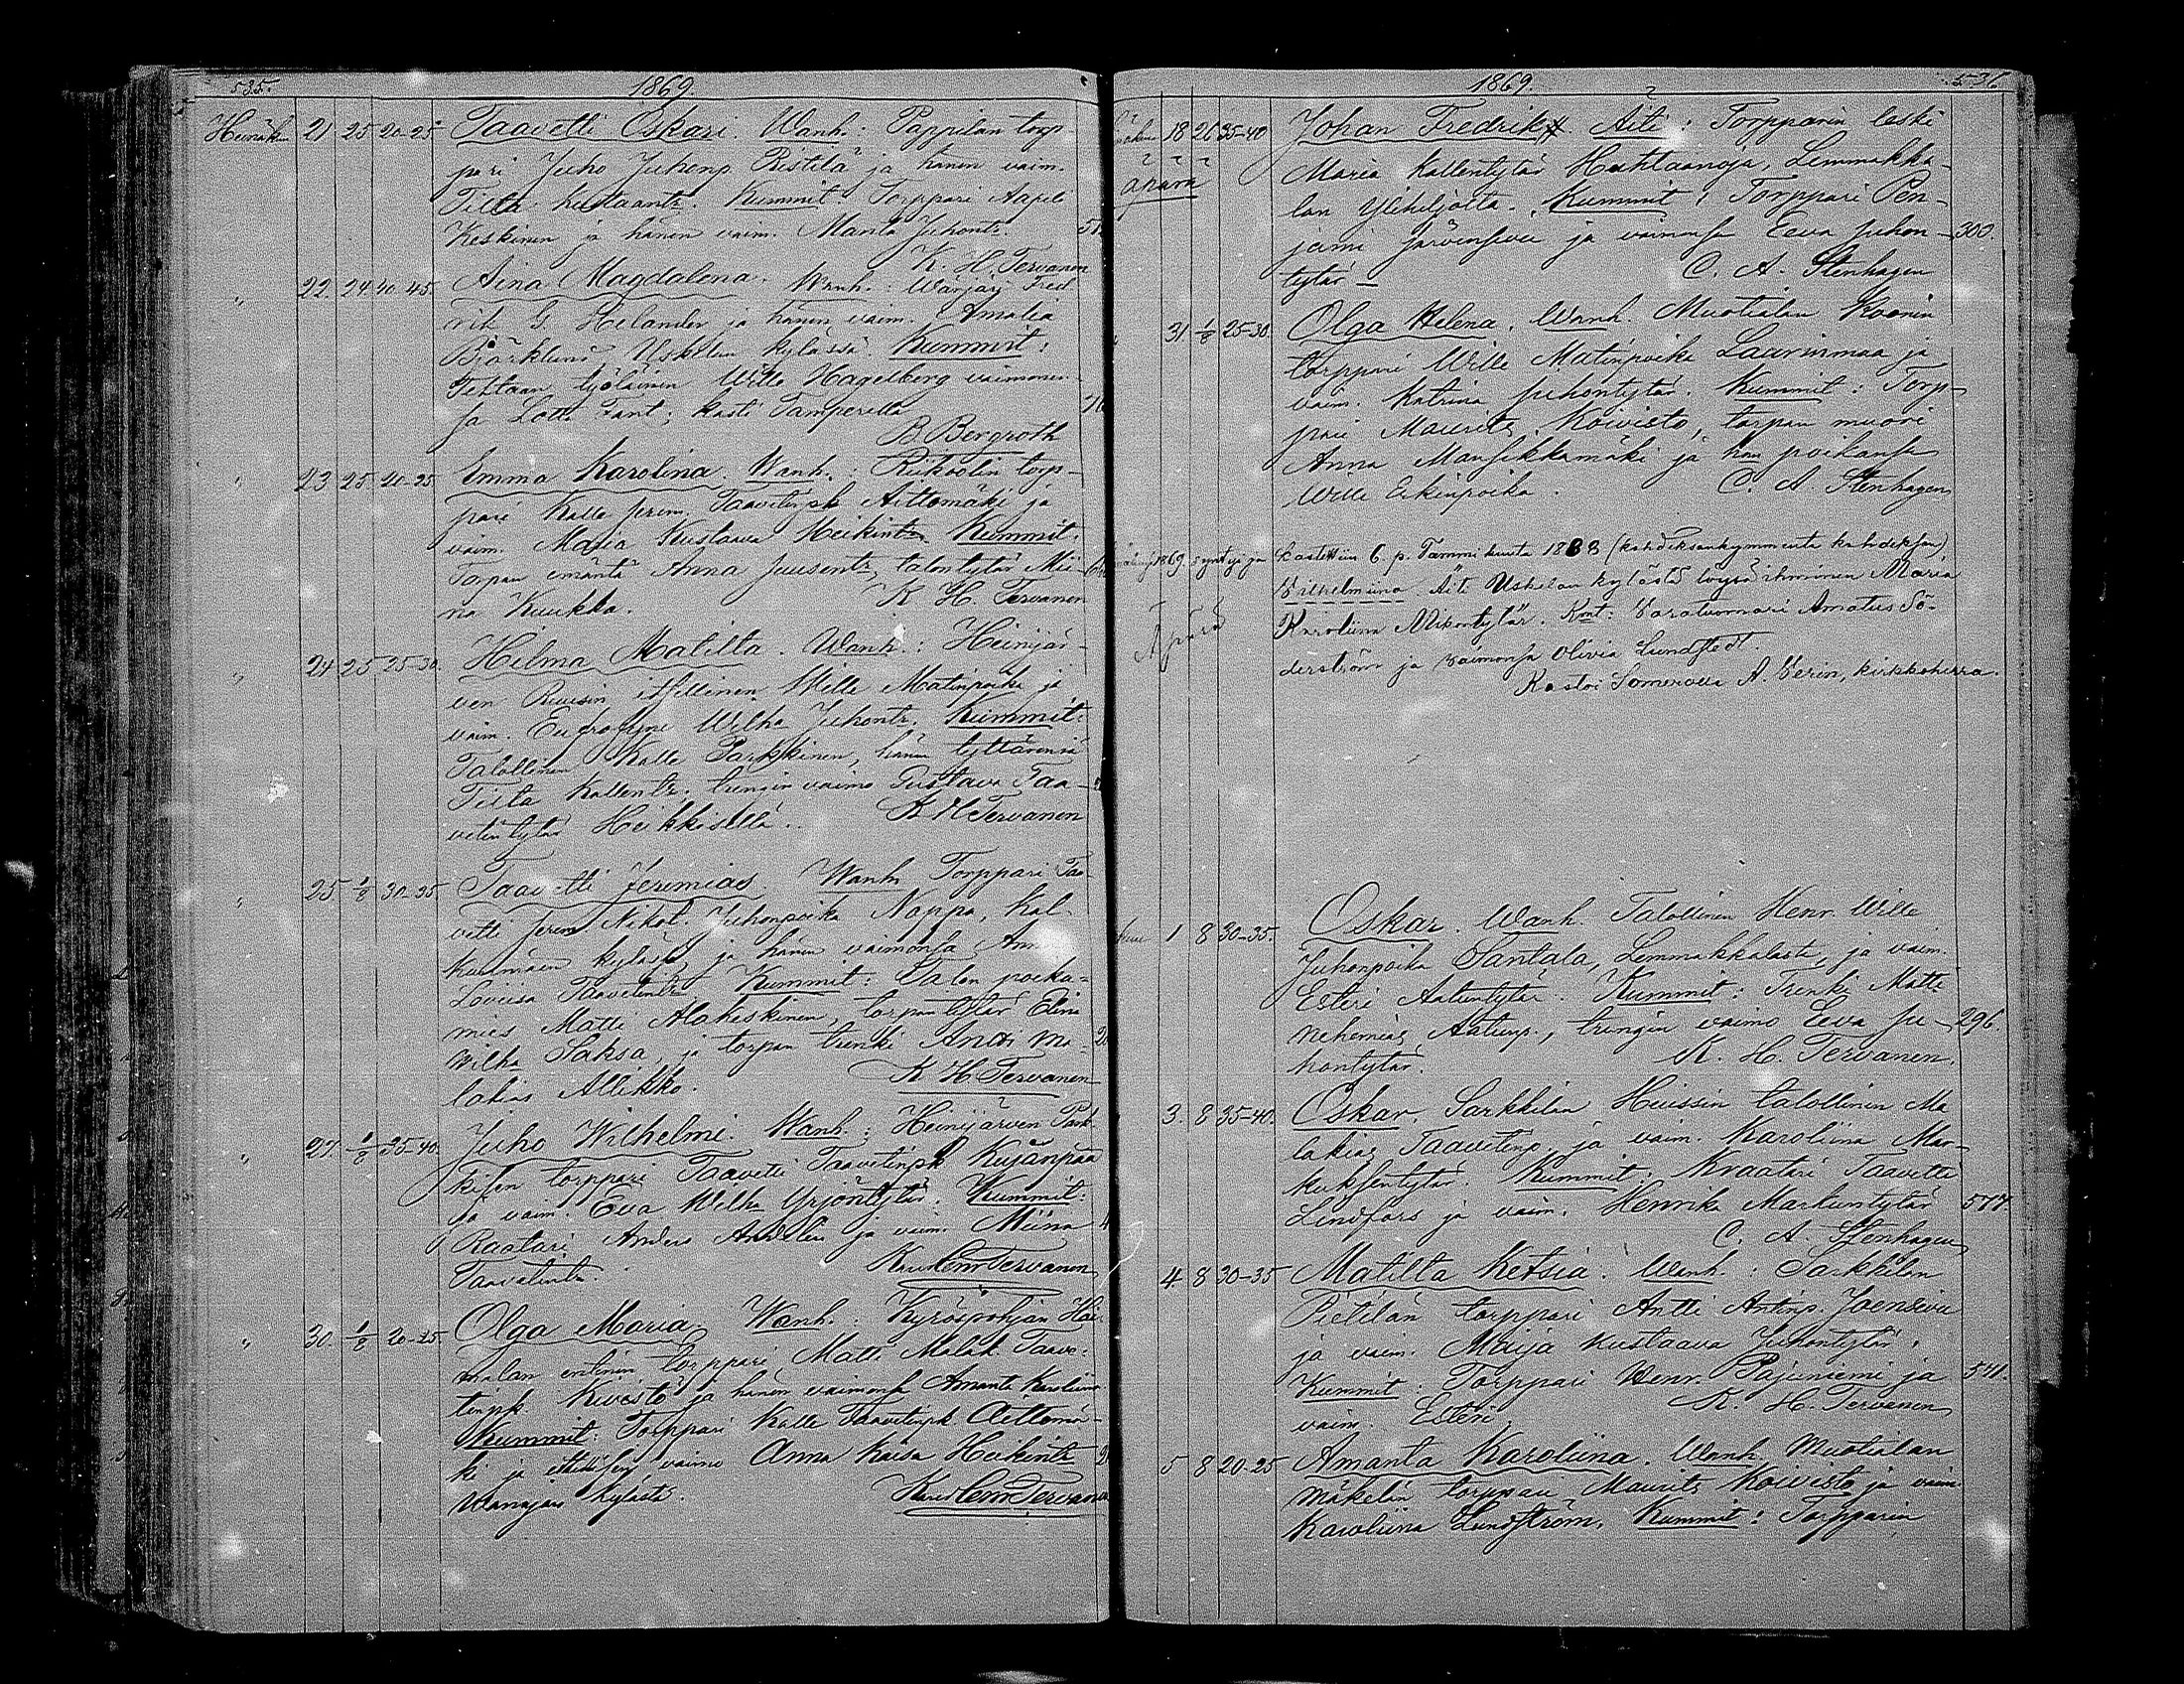 535.
1869.
Heinäkuu 21 25 20-25 Taavetti Oskari. Wanh.: Pappilan torp-
pari Juho Juhonp. Ristilä ja hänen vaim.
Tilta Kustaantr. Kummit: Torppari Aapeli
Keskinen ja hänen vaim. Manta Juhontr.
K. H. Tervanen
" 22. 24 40-45. Aina Magdalena. Wanh.: Wärjäri Fred
rik G. Helander ja hänen vaim. Amalia
Björklund Uskelan kylässä. Kummit:
Tehtaan työläinen Wille Hagelberg vaimonen-
sa Lotta Fant; kasti Tamperella
B Bergroth
" 23 25 20-25 Emma Karolina. Wanh.: torp-
pari Kalle Jerem. Taavetinpk Aittomäki ja
vaim. Maria Kustaava Heikintr. Kummit:
Torpan emäntä Anna Juusentr, talontytär Mii-
na Kuukka. K H. Tervanen
" 24 25 25-30. Hilma Matilta. Wanh.: Heinijär-
ven itsellinen Wille Matinpoika ja
vaim. Eufrosyne Wilha Juhontr. Kummit:
Talollinen Kalle Parkkinen, hänen tyttärensä
Tilta Kallentr. trengin vaimo Gustava Taa-
vetintytär Heikkisellä. K H Tervanen
" 25 1/8 30-35. Taavetti Jeremias. Wanh Torppari Taa-
vetti Jerem Nikol. Juhonpoika Nappa, Kal-
kunmäen kylästä ja hänen vaimonsa Ann
Loviisa Taavetintr Kummit: Talon poika-
mies Matti Alakeskinen, torpan tytär Elina
Wilha Saksa, ja torpan trenki Antti Ma-
lakias Allikko. K H Tervanen
" 27. 1/8 35-40. Juho Wilhelmi. Wanh.: Heinijärven Park
kisen torppari Taavetti Taavetinpk Kujanpää
ja vaim Eva Wilha Yrjöntytär. Kummit:
Raatari Anders ja vaim. Miina
Taavetintr. Tervanen
" 30. 1/8 20-25 Olga Maria. Wanh.: Kyröspohjan Hei-
malan entinen torppari Matti Malak. Taave-
tinpk. Kivistö ja hänen vaimonsa Amanta Karoliina
Kummit: Torppari Kalle Taavetinpk Aittomä-
ki ja itsellisen vaimo Anna Kaisa Heikintr
kylästä. Tervanen
1869.
536
18 26 35-40 Johan Fredrik. Äiti: Torpparin leski
äpärä Maria Kallentytär Huhtaanoja, Lemmakka-
lan Ylihiljotta. Kummit: Torppari Pen-
jami Järvensivu ja vaimonsa Eeva Juhon- 300.
tytär – C. A. Stenhagen
31 1/8 25-30 Olga Helena. Wanh. Muotialan Koorin
torppari Wille Matinpoika Laurinmaa ja
vaim. Katrina Juhontytär. Kummit: Torp-
pari Maurits Koivisto, torpan muori
Anna Mansikkamäki ja hän poikansa
Wille Erkinpoika. C. A. Stenhagen
1869 syntyi ja kastettiin 6 p. Tammikuuta 1888 (kahdeksankymmentä kahdeksan)
Äpärä Vilhelmiina. Äiti Uskelan kylästä löysä ihminen Maria
Karoliina Mikontytär. Kmt: Varatuomari Amatus Sö-
derström ja vaimonsa Olivia Lundstedt.
Kastoi Somerolla A. Verin, kirkkoherra.
1 8 30-35. Oskar. Wanh. Talollinen Henr. Wille
Juhonpoika Santala, Lemmakkalasta, ja vaim.
Esteri Aatuntytär. Kummit: Trenki Matti
Nehemias Aatunp., trengin vaimo Eeva Ju- 296.
hontytär. K. H. Tervanen.
3. 8 35-40. Oskar. Sarkkilan Huissin talollinen Ma
lakias Taavetinp. ja vaim. Karoliina Mar-
kuksentytär. Kummit: Kraatari Taavetti
Lindfors ja vaim. Henrika Markuntytär 577.
C. A. Stenhagen
4 8 30-35 Matilta Ketsia. Wanh.: Sarkkilan
Pietilän torppari Antti Antinp. Joensivu
ja vaim. Maija Kustaava Juhontytär.
Kummit: Torppari Henr. Pajuniemi ja 541.
vaim. Esteri. K. H. Tervanen
5 8 20-25 Amanta Karoliina. Wanh. Muotialan
Mäkelän torppari Maurits Koivisto ja vaim.
Karoliina Lundström. Kummit: Torpparin